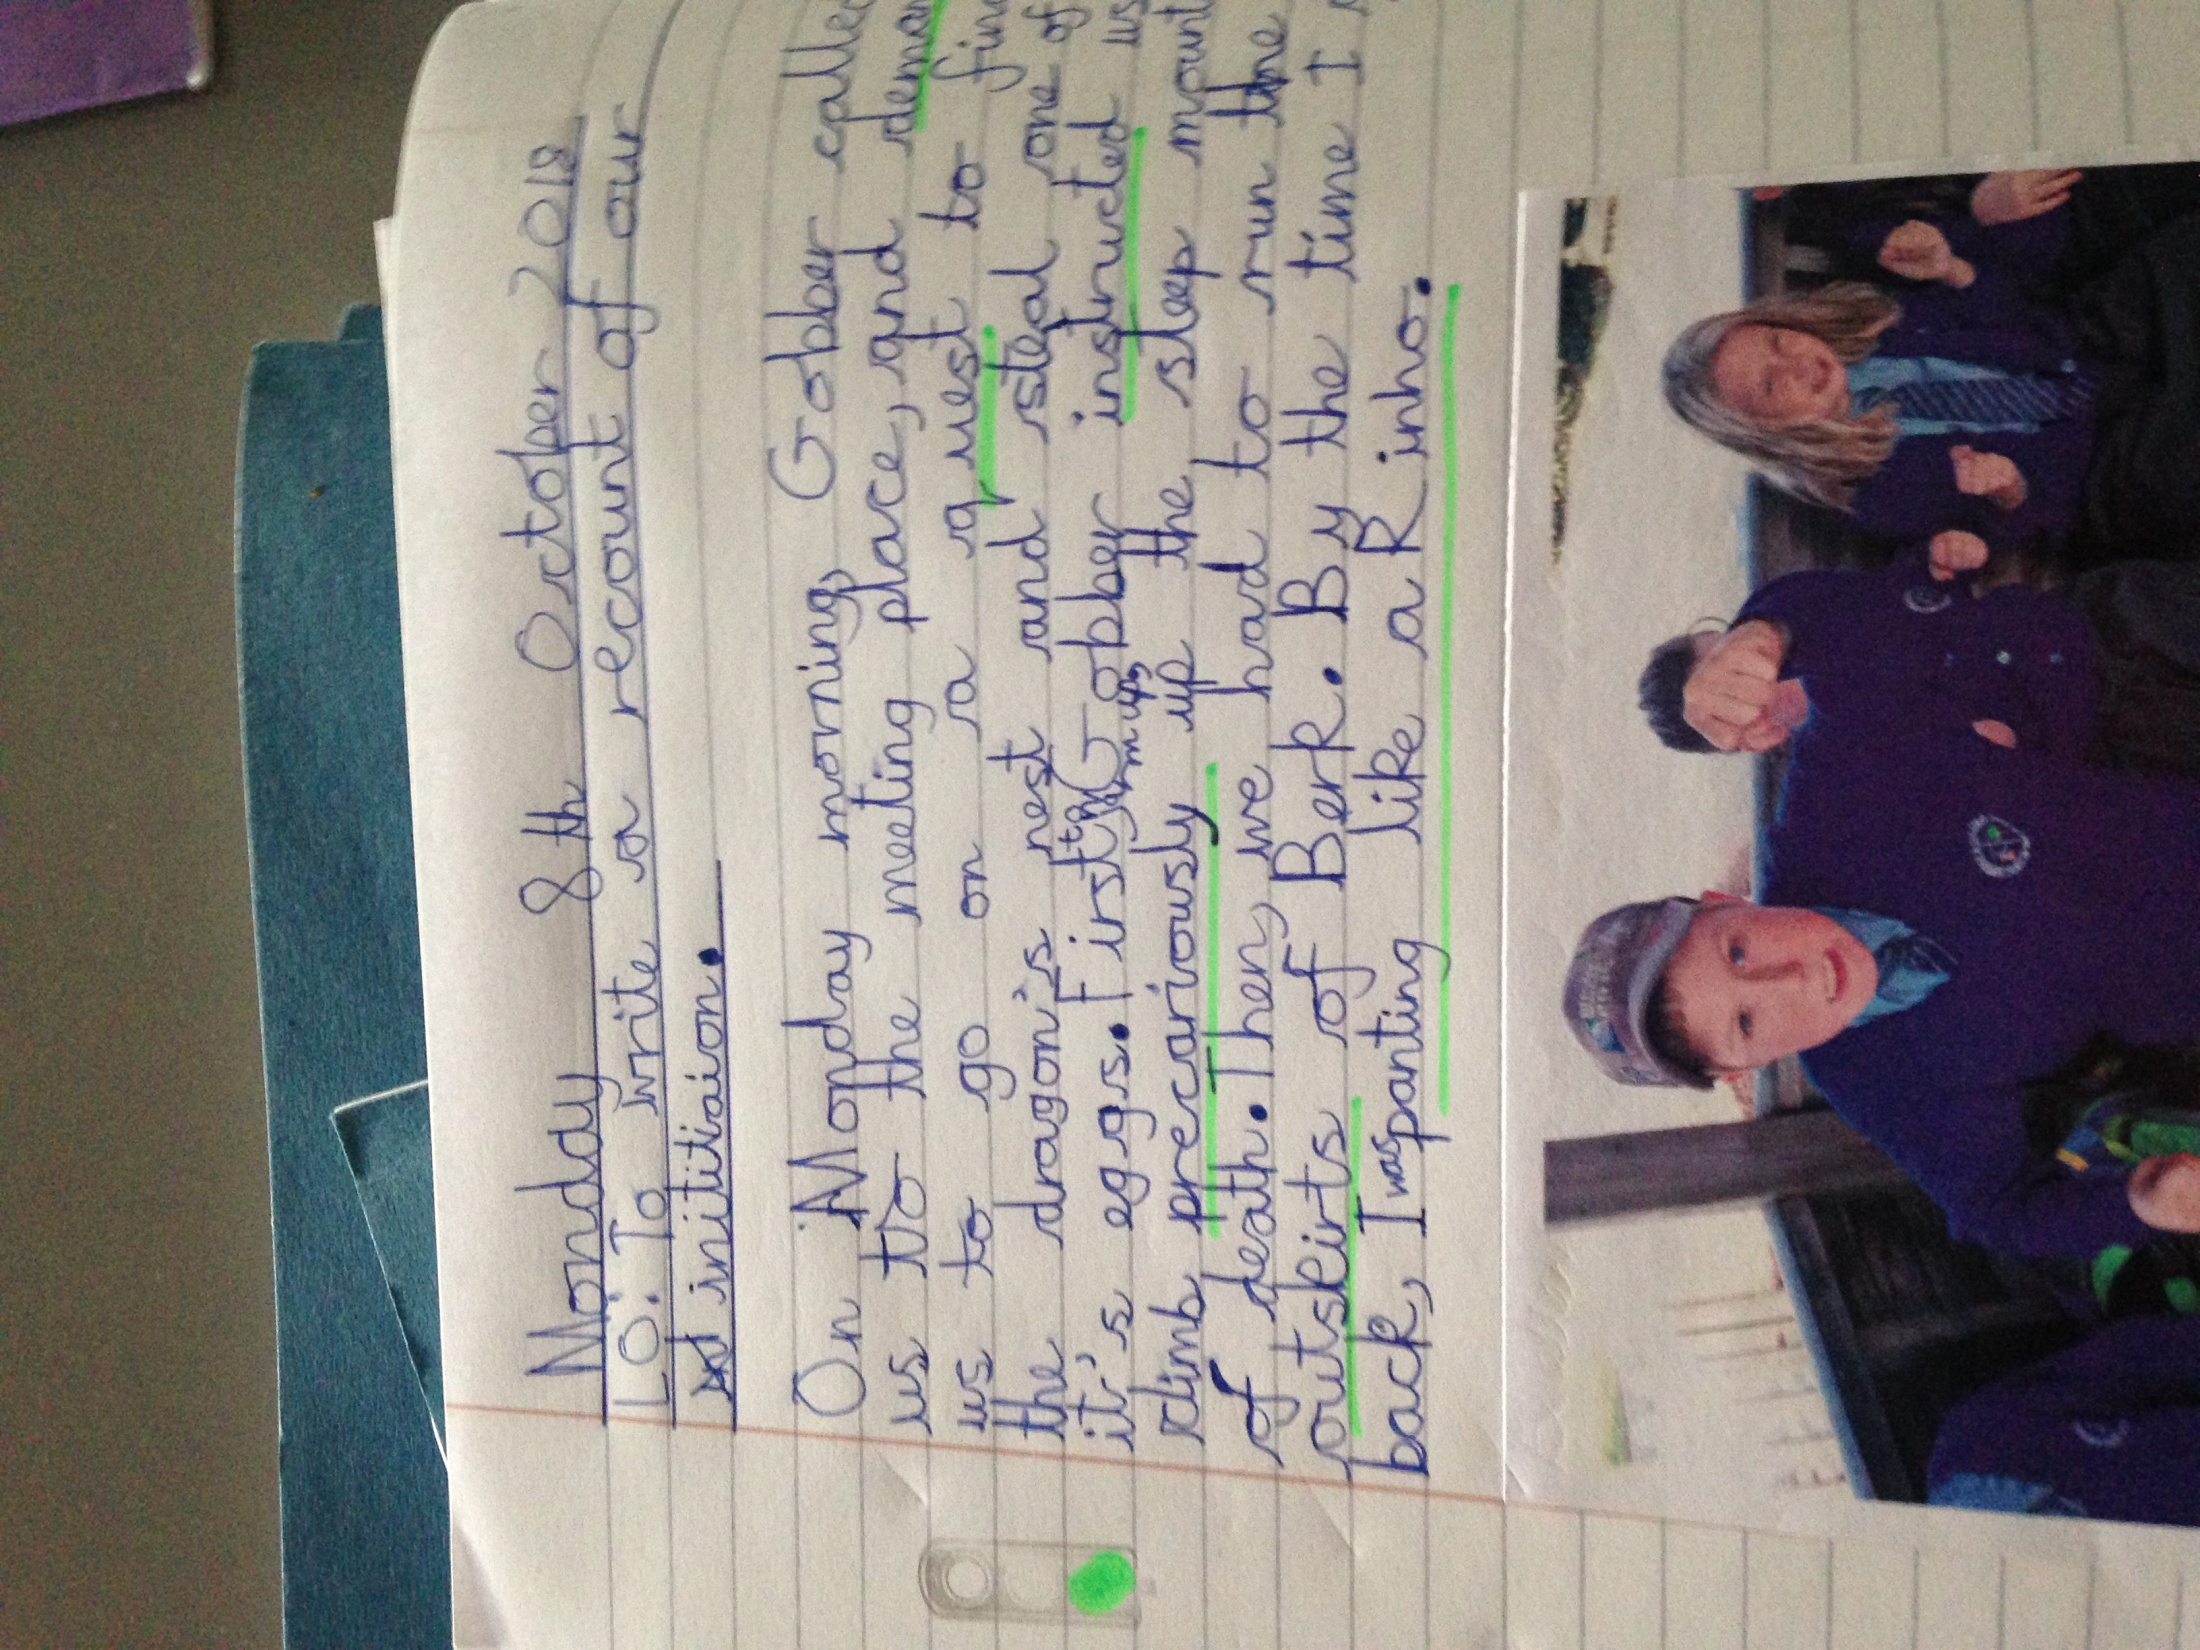 Monday 8th October 2018
LO: To write a recount of our
initiaion.
On Monday morning, Gobber called
us to the meeting place, and deman
us to go on a quest to find
the dragon's nest and steal one of
it's eggs. First, to warm up, Gobber instructed us
climb precariously up the steep mount
of death. Then, we had to run the
outskirts of Berk. By the time I
back, I was panting like a Rinho.